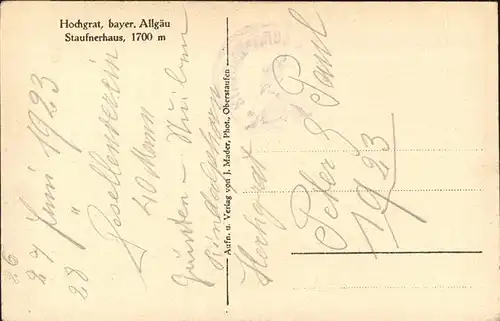 Hochgrat, bayer. Allgäu
Staufnerhaus, 1700 m
26
27 Juni 1923
28 "
Gesellenverein
40 Mann
Grünten –
Rindalphorn
Hochgrat
Aufn. u. Verlag von J. Mader, Phot., Oberstaufen
Peter & Paul
1923